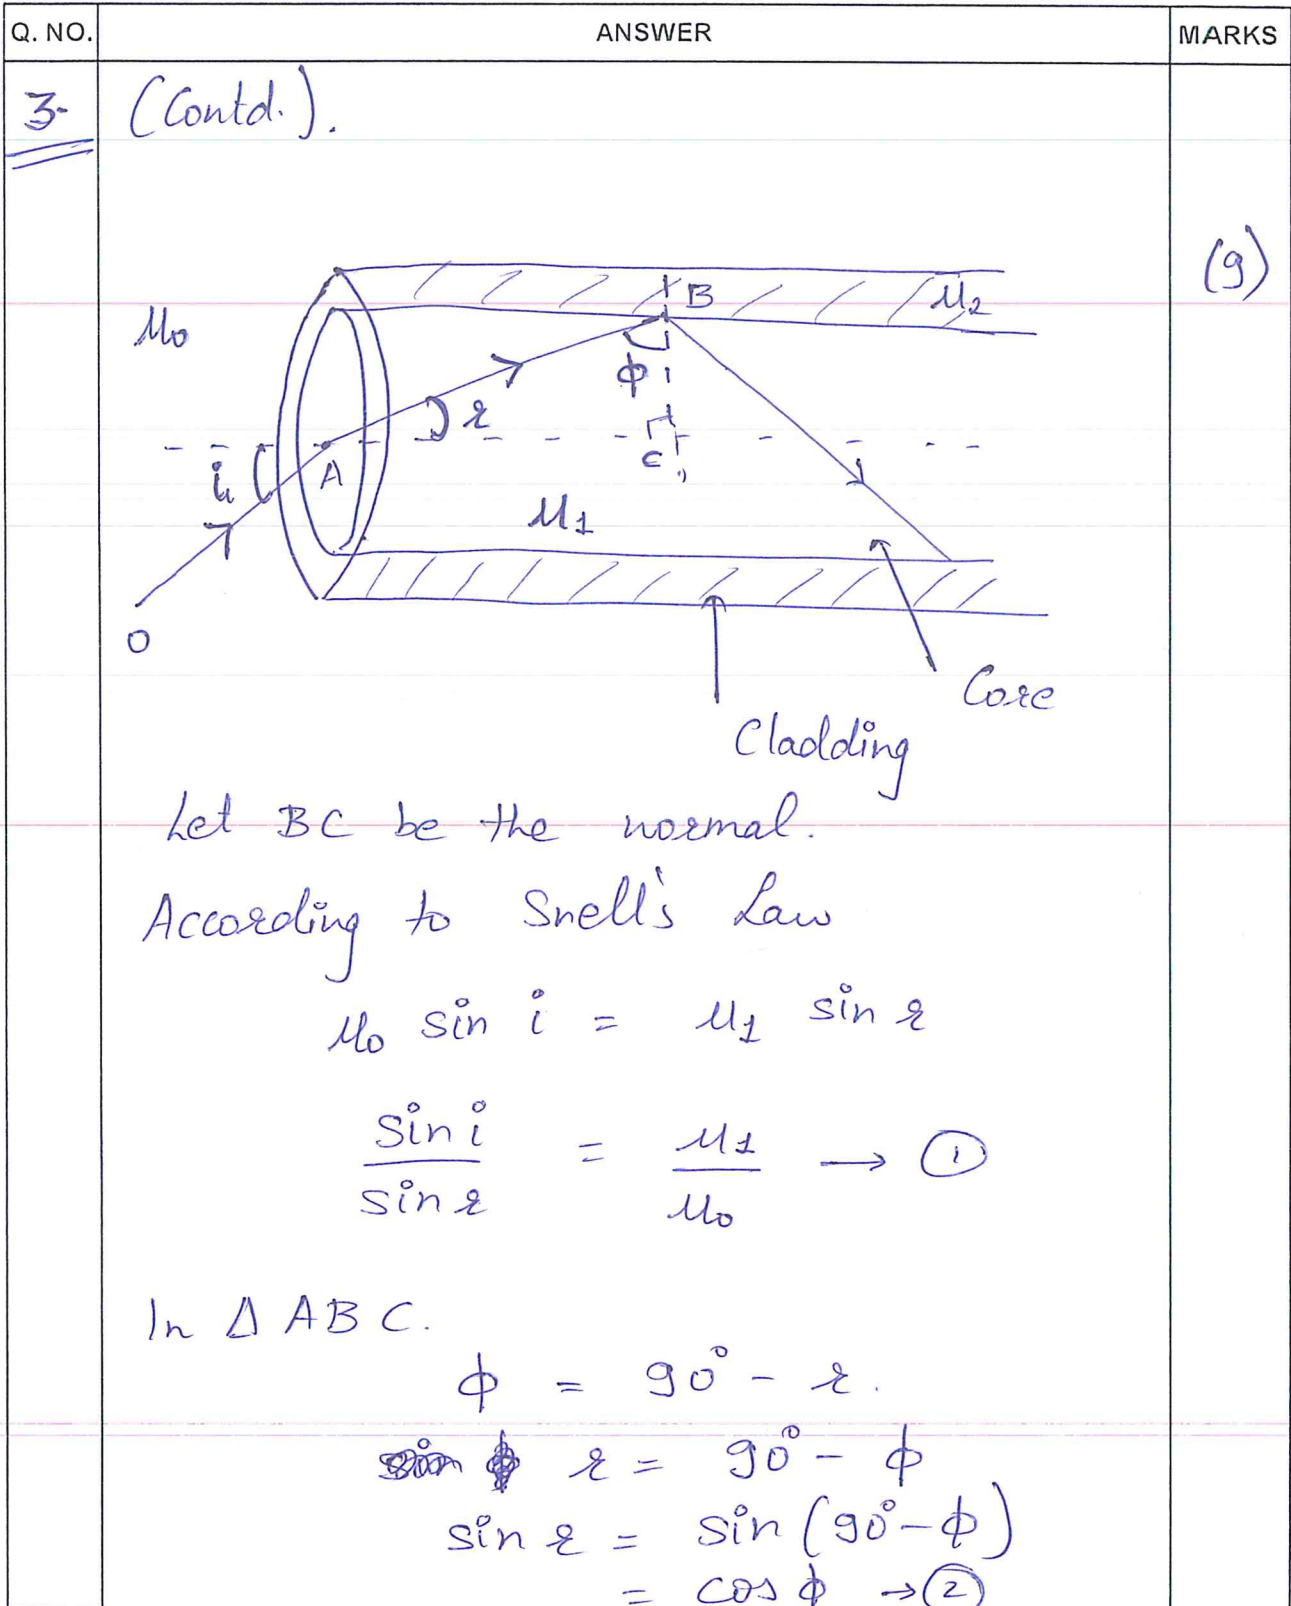 Q. NO. ANSWER MARKS
3. (Contd.).
(9)
B μ2
μ0
ϕ
r
i A C
μ1
O
Core
Cladding
Let BC be the normal.
According to Snell's Law
μ0 sin i = μ1 sin r
sin i / sin r = μ1 / μ0 → ①
In Δ ABC.
ϕ = 90° - r.
r = 90° - ϕ
sin r = sin (90° - ϕ)
= cos ϕ → ②